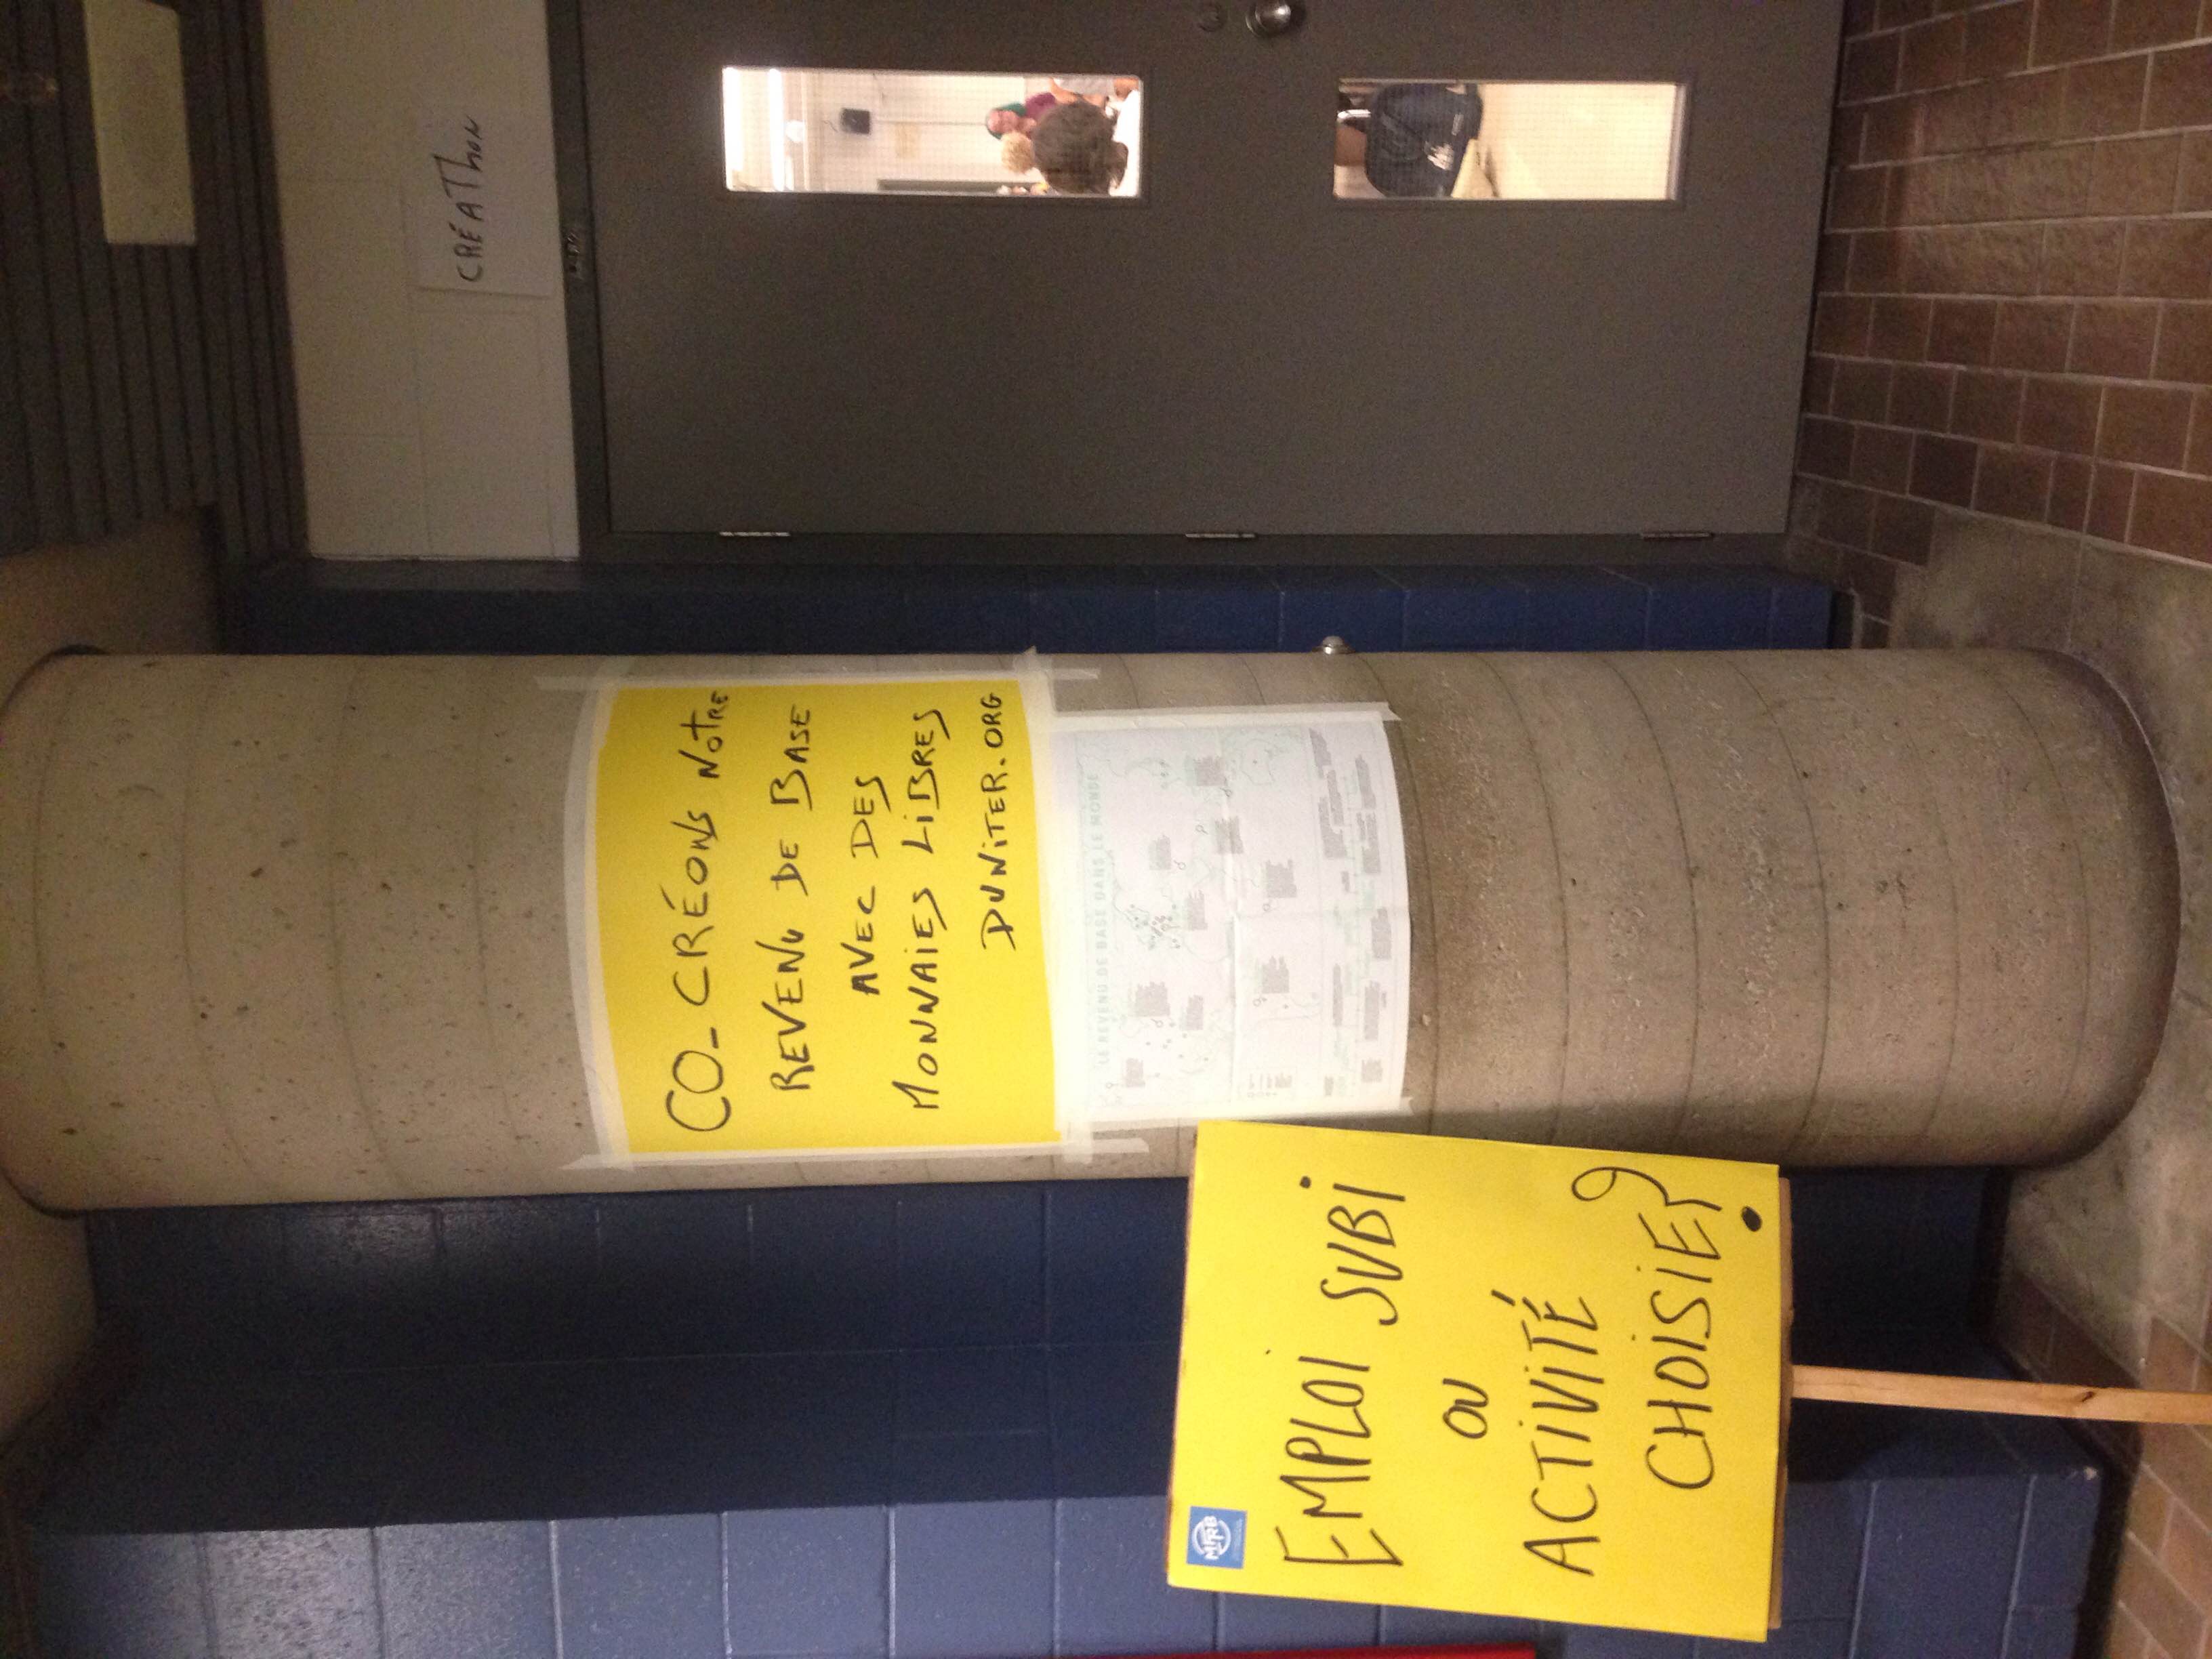 CRÉATHON
CO-CRÉONS NOTRE
REVENU DE BASE
AVEC DES
MONNAIES LIBRES
DUNITER.ORG
LE REVENU DE BASE DANS LE MONDE
MFRB
EMPLOI SUBI
OU
ACTIVITÉ
CHOISIE?